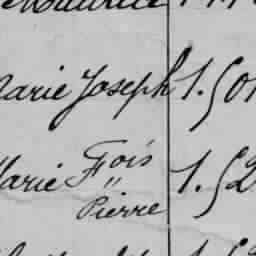 Maurice
Marie Joseph 1.501
Marie Fçois 1.52
" Pierre